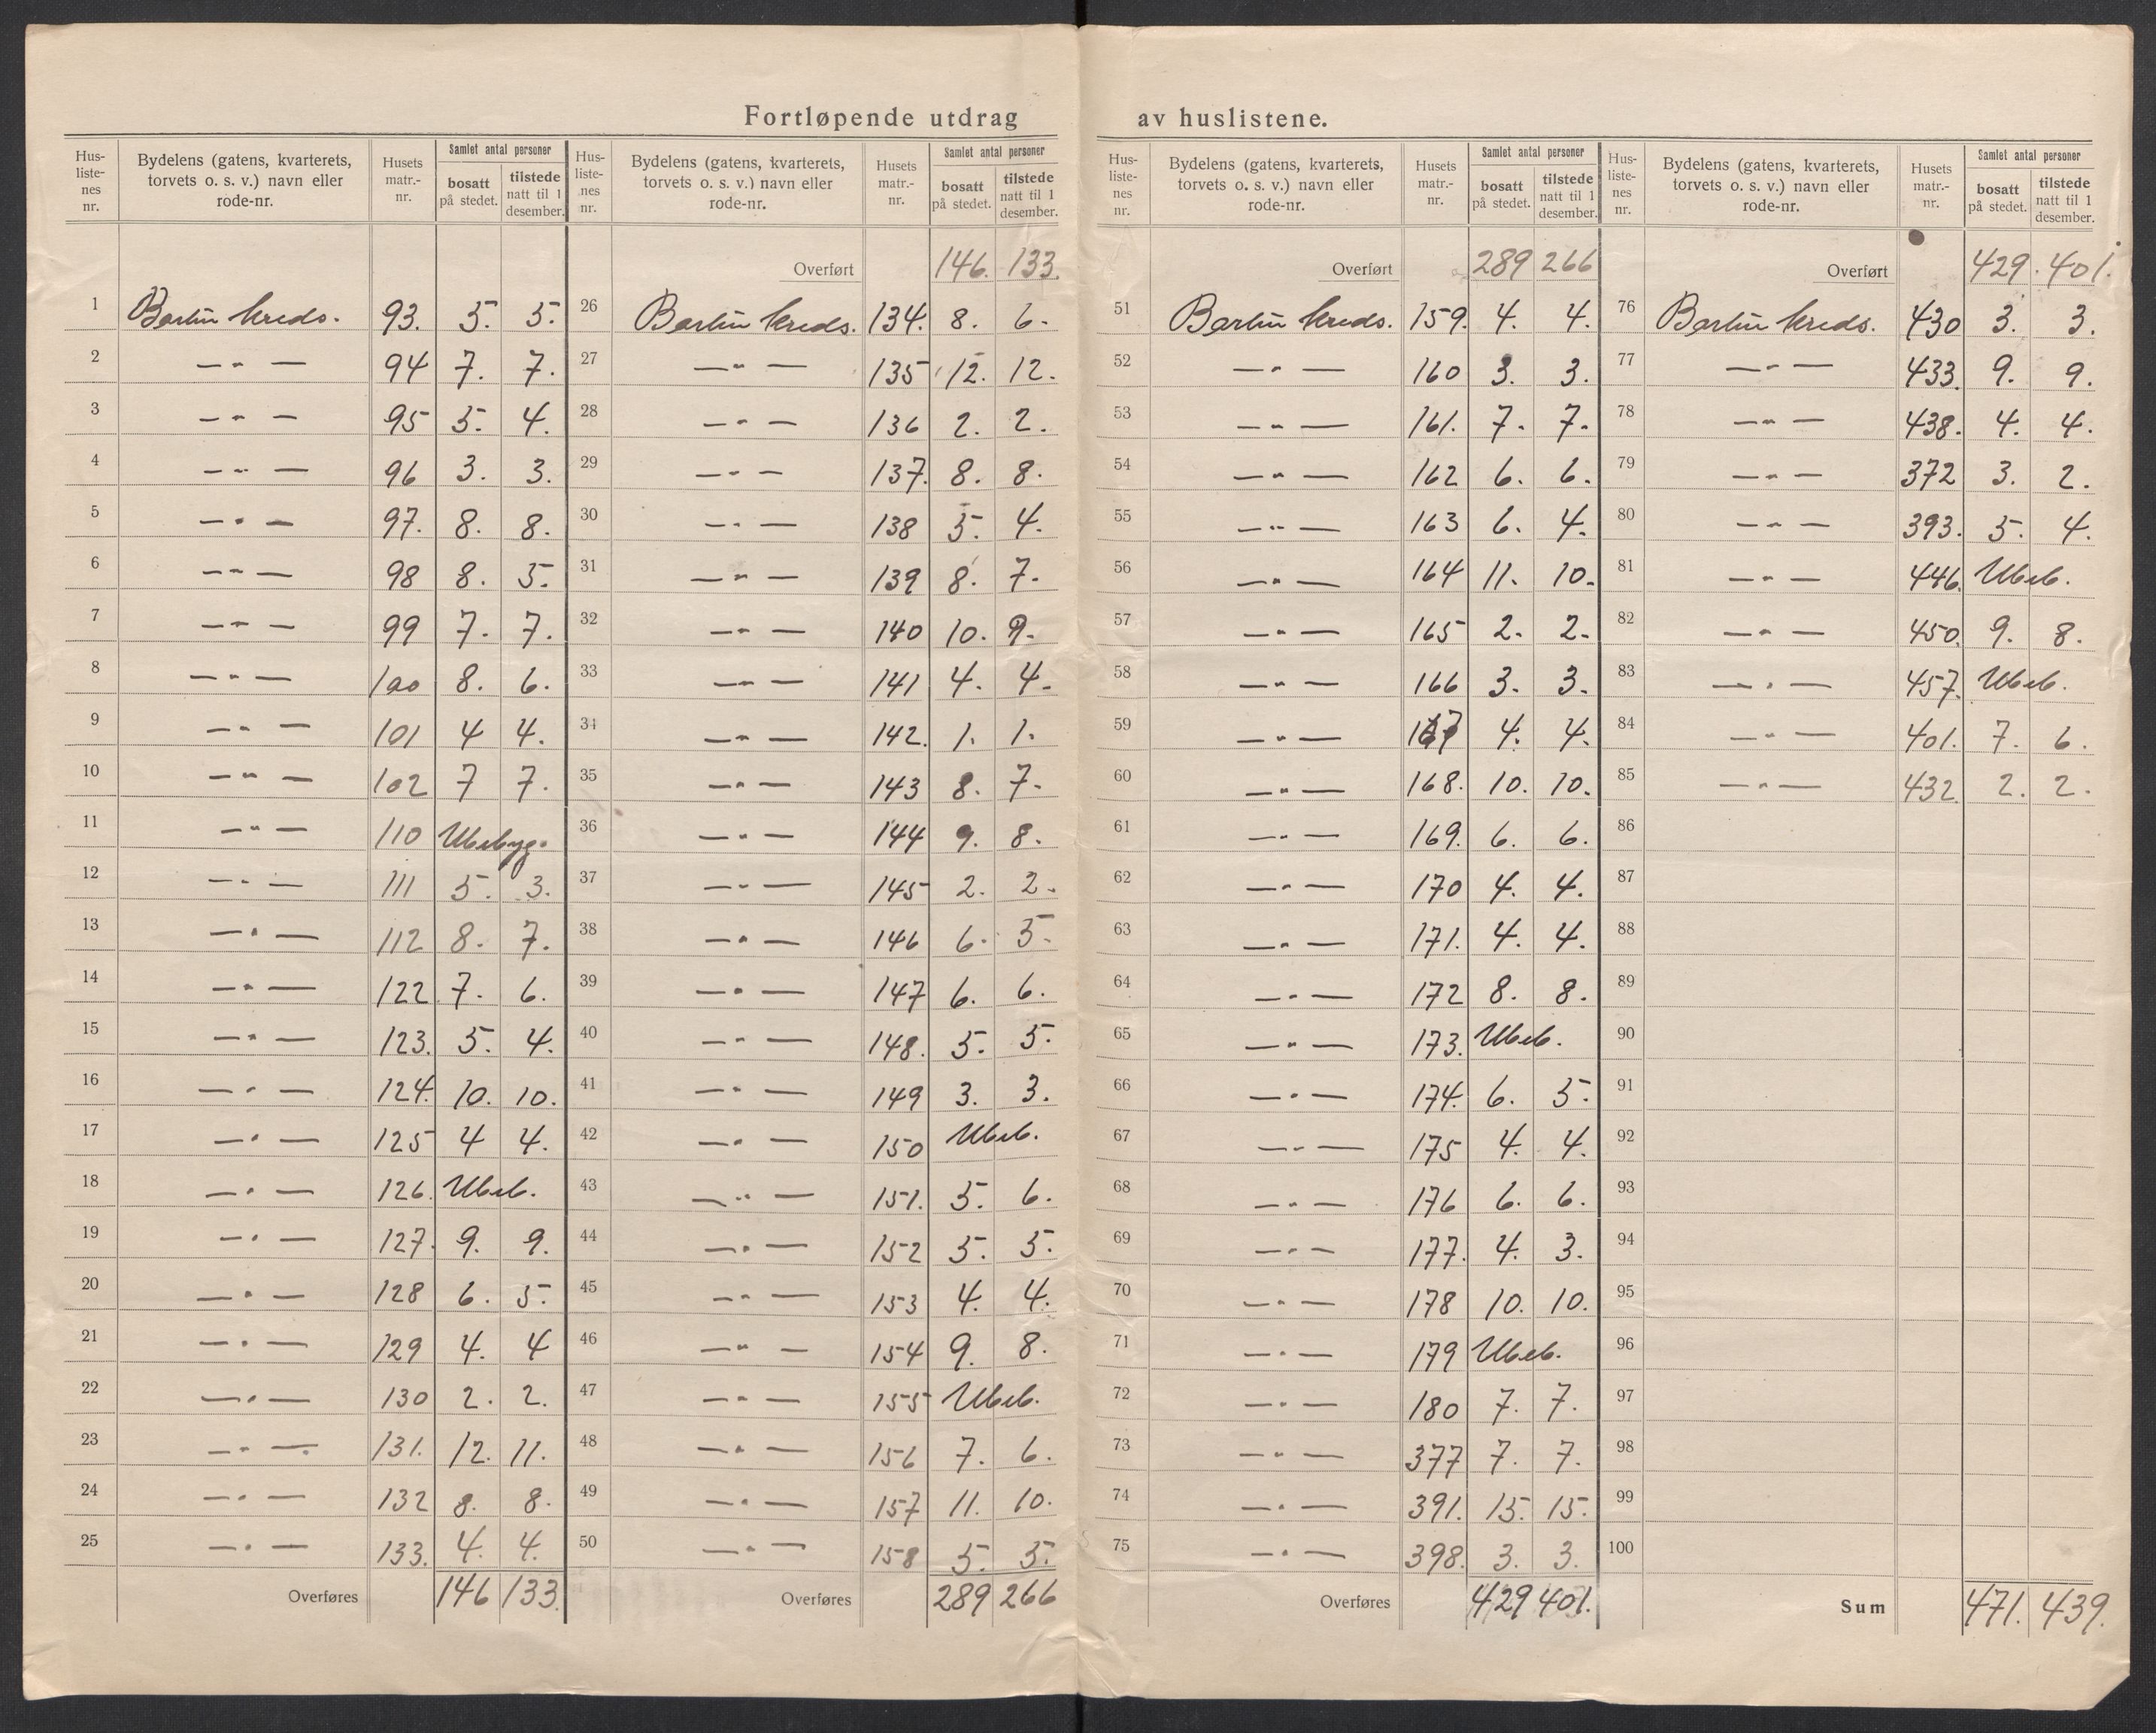 Fortløpende utdrag av huslistene.
Hus-liste-nes nr. | Bydelens (gatens, kvarterets, torvets o. s. v.) navn eller rode-nr. | Husets matr.-nr. | Samlet antal personer | bosatt på stedet. | tilstede natt til 1 desember.
1 Berlin kreds. 93. 5. 5.
2 — " — 94 7. 7.
3 — " — 95 5. 4.
4 — " — 96 3. 3.
5 — " — 97. 8. 8.
6 — " — 98 8. 5.
7 — " — 99 7. 7.
8 — " — 100 8. 6.
9 — " — 101 4 4.
10 — " — 102 7 7.
11 — " — 110 Ubebyg.
12 — " — 111 5. 3.
13 — " — 112 8. 7.
14 — " — 122 7. 6.
15 — " — 123. 5. 4.
16 — " — 124. 10. 10.
17 — " — 125 4 4.
18 — " — 126. Ubeb.
19 — " — 127. 9. 9.
20 — " — 128 6. 5.
21 — " — 129 4. 4
22 — " — 130 2. 2.
23 — " — 131. 12. 11.
24 — " — 132 8. 8.
25 — " — 133. 4. 4.
Overføres 146 133.
Hus-liste-nes nr. | Bydelens (gatens, kvarterets, torvets o. s. v.) navn eller rode-nr. | Husets matr.-nr. | Samlet antal personer | bosatt på stedet. | tilstede natt til 1 desember.
Overført 146. 133.
26 Berlin kreds. 134. 8. 6.
27 — " — 135 12. 12.
28 — " — 136 2. 2.
29 — " — 137. 8. 8.
30 — " — 138 5. 4.
31 — " — 139 8. 7.
32 — " — 140 10. 9.
33 — " — 141 4. 4.
34 — " — 142. 1. 1.
35 — " — 143 8. 7.
36 — " — 144 9. 8.
37 — " — 145 2. 2.
38 — " — 146 6. 5.
39 — " — 147 6. 6.
40 — " — 148. 5. 5.
41 — " — 149 3. 3.
42 — " — 150 Ubeb.
43 — " — 151. 5. 6.
44 — " — 152 5. 5.
45 — " — 153 4. 4.
46 — " — 154 9. 8.
47 — " — 155 Ubeb.
48 — " — 156 7. 6.
49 — " — 157 11. 10.
50 — " — 158 5. 5.
Overføres 289 266
Hus-liste-nes nr. | Bydelens (gatens, kvarterets, torvets o. s. v.) navn eller rode-nr. | Husets matr.-nr. | Samlet antal personer | bosatt på stedet. | tilstede natt til 1 desember.
Overført 289 266
51 Berlin kreds. 159. 4. 4.
52 — " — 160 3. 3.
53 — " — 161. 7. 7.
54 — " — 162 6. 6.
55 — " — 163 6. 4.
56 — " — 164 11. 10.
57 — " — 165 2. 2.
58 — " — 166 3. 3.
59 — " — 167 4. 4.
60 — " — 168. 10. 10.
61 — " — 169. 6. 6.
62 — " — 170 4. 4.
63 — " — 171. 4. 4.
64 — " — 172 8. 8.
65 — " — 173. Ubeb.
66 — " — 174. 6. 5.
67 — " — 175 4. 4.
68 — " — 176 6. 6.
69 — " — 177. 4. 3.
70 — " — 178 10. 10.
71 — " — 179 Ubeb.
72 — " — 180 7. 7.
73 — " — 377 7. 7.
74 — " — 391. 15. 15.
75 — " — 398. 3. 3.
Overføres 429 401.
Hus-liste-nes nr. | Bydelens (gatens, kvarterets, torvets o. s. v.) navn eller rode-nr. | Husets matr.-nr. | Samlet antal personer | bosatt på stedet. | tilstede natt til 1 desember.
Overført 429. 401.
76 Berlin kreds. 430 3. 3.
77 — " — 433. 9. 9.
78 — " — 438. 4. 4.
79 — " — 372 3. 2.
80 — " — 393. 5. 4.
81 — " — 446. Ubeb.
82 — " — 450. 9. 8.
83 — " — 457. Ubeb.
84 — " — 401. 7. 6.
85 — " — 432. 2. 2.
86
87
88
89
90
91
92
93
94
95
96
97
98
99
100
Sum 471. 439.